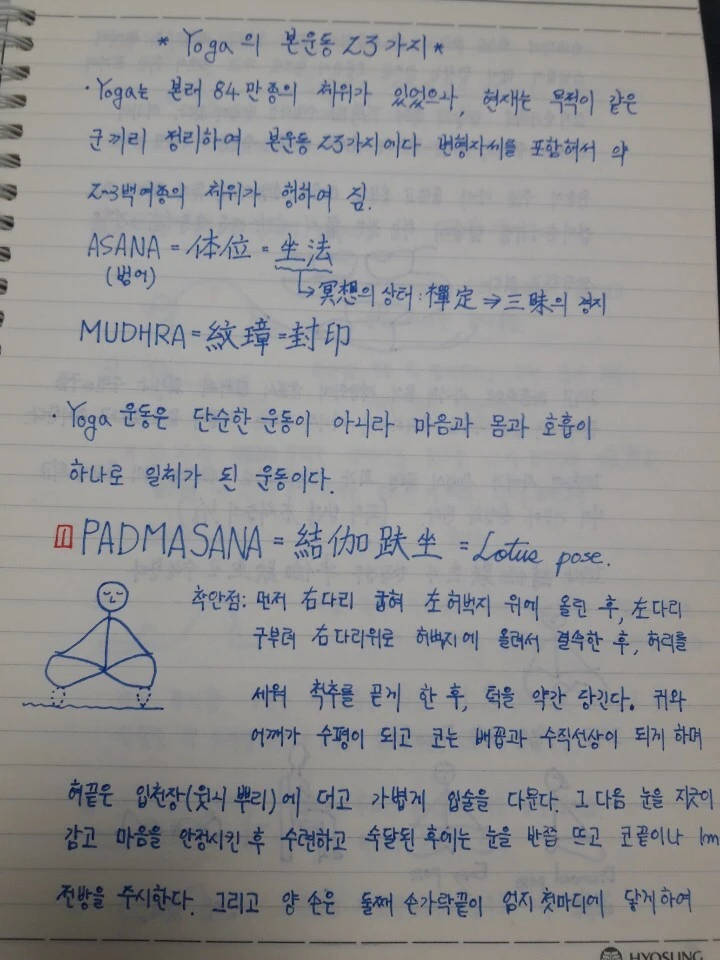 * Yoga의 본운동 23가지 *
· Yoga는 본래 84만종의 체위가 있었으나, 현재는 목적이 같은
군끼리 정리하여 본운동 23가지이다 변형자세를 포함해서 약
2~3백여종의 체위가 행하여 짐.
ASANA = 体位 = 坐法
(범어)
↳ 冥想의 상태 : 禪定 ⇒ 三昧의 경지
MUDHRA = 紋璋 = 封印
· Yoga 운동은 단순한 운동이 아니라 마음과 몸과 호흡이
하나로 일체가 된 운동이다.
1 PADMASANA = 結伽趺坐 = Lotus pose.
착안점: 먼저 右다리 굽혀 左허벅지 위에 올린 후, 左다리
구부려 右다리위로 허벅지에 올려서 결속한 후, 허리를
세워 척추를 곧게 한 후, 턱을 약간 당긴다. 귀와
어깨가 수평이 되고 코는 배꼽과 수직선상이 되게 하며
혀끝은 입천장(윗니 뿌리)에 대고 가볍게 입술을 다문다. 그 다음 눈을 지긋이
감고 마음을 안정시킨 후 수련하고 숙달된 후에는 눈을 반쯤 뜨고 코끝이나 1m
전방을 주시한다. 그리고 양 손은 둘째 손가락끝이 엄지 첫마디에 닿게하여
HYOSUNG